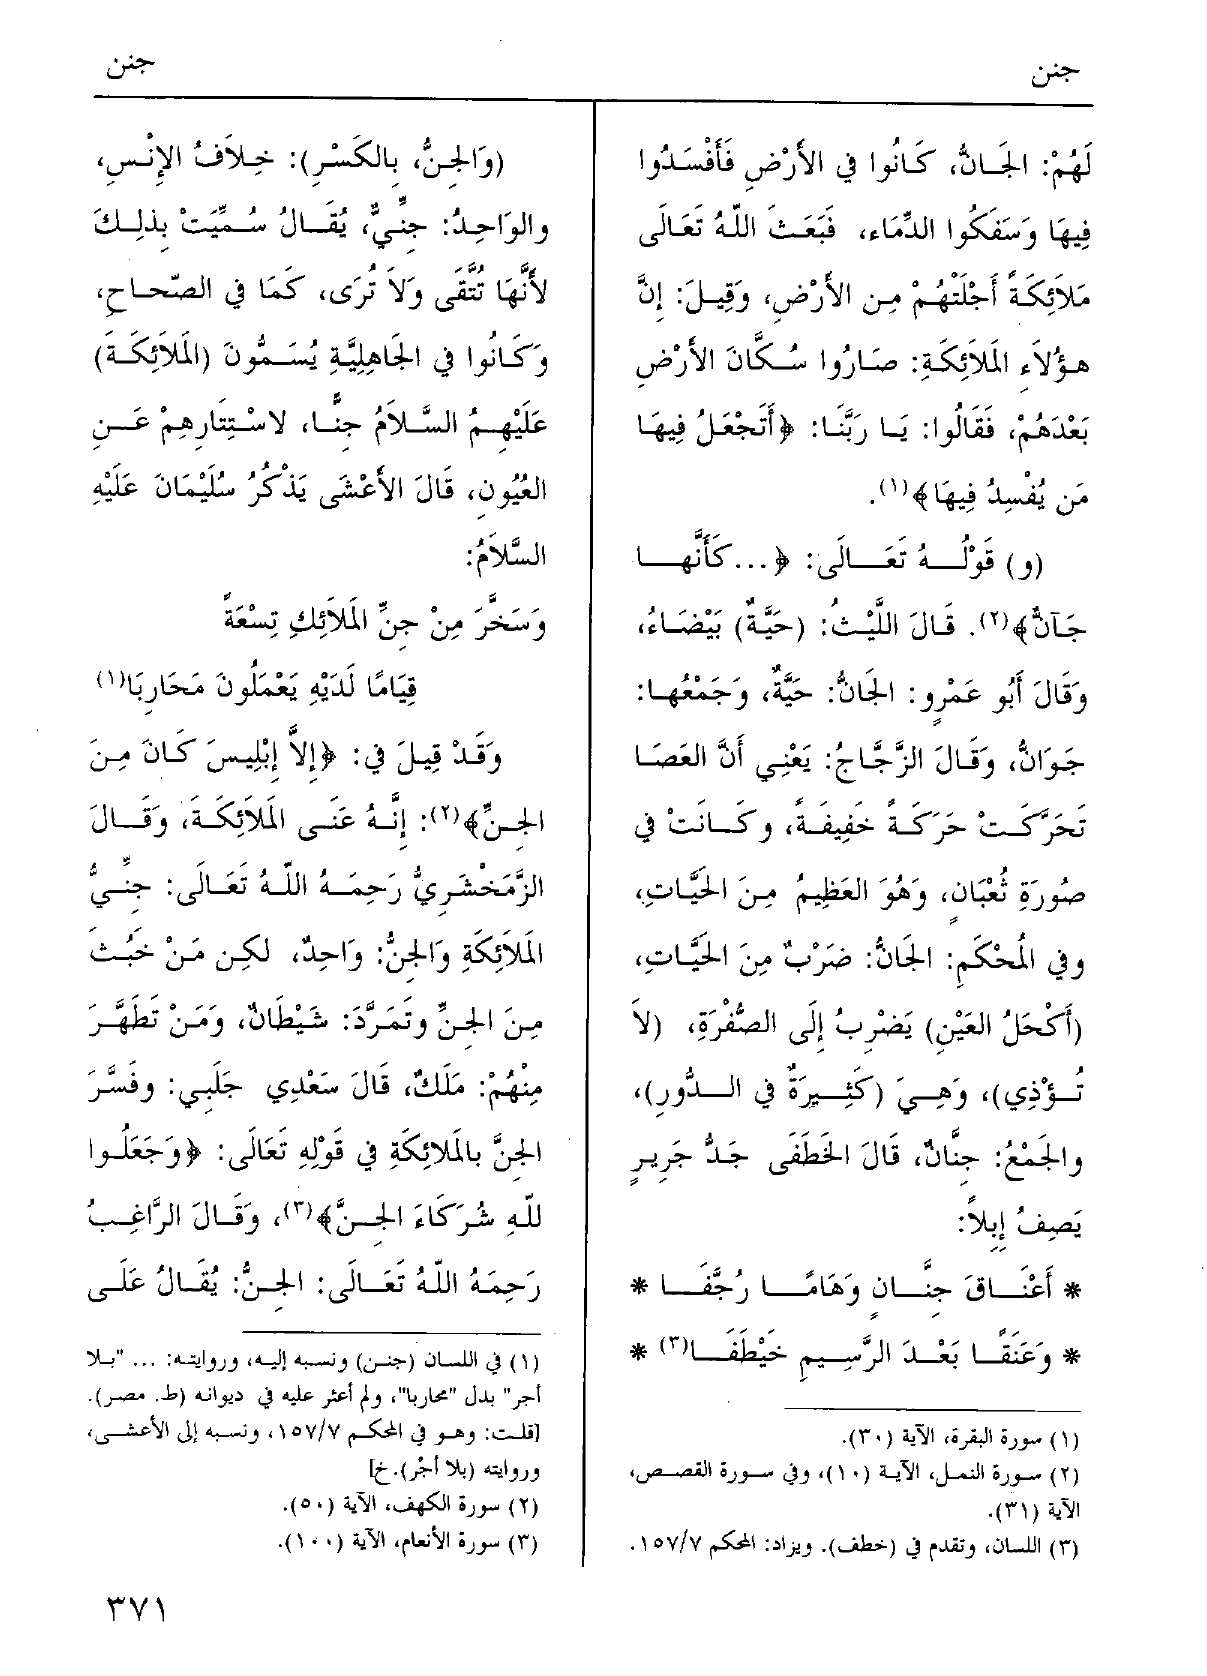 جنن
جنن
لَهُمْ: الجَانُّ، كَانُوا في الأَرْضِ فَأَفْسَدُوا
فِيهَا وَسَفَكُوا الدِّمَاء، فَبَعَثَ اللهُ تَعَالَى
مَلاَئِكَةً أَجْلَتْهُمْ مِن الأَرْضِ، وَقِيلَ: إِنَّ
هؤُلاَءِ المَلاَئِكَةِ: صَارُوا سُكَّانَ الأَرْضِ
بَعْدَهُمْ، فَقَالُوا: يَا رَبَّنَا: ﴿أَتَجْعَلُ فِيهَا
مَن يُفْسِدُ فِيهَا﴾(١).
(و) قَوْلُهُ تَعَالَى: ﴿...كَأَنَّهَا
جَآنٌّ﴾(٢). قَالَ اللَّيْثُ: (حَيَّةٌ) بَيْضَاءُ،
وَقَالَ أَبُو عَمْرٍو: الجَانُّ: حَيَّةٌ، وَجَمْعُهَا:
جَوَانُّ، وَقَالَ الزَّجَّاجُ: يَعْنِي أَنَّ العَصَا
تَحَرَّكَتْ حَرَكَةً خَفِيفَةً، وكَانَتْ في
صُورَةِ ثُعْبَانٍ، وَهُوَ العَظِيمُ مِنَ الحَيَّاتِ،
وفي المُحْكَمِ: الجَانُّ: ضَرْبٌ مِنَ الحَيَّاتِ،
(أَكْحَلُ العَيْنِ) يَضْرِبُ إِلَى الصُّفْرَةِ، (لاَ
تُؤْذِي)، وَهِيَ (كَثِيرَةٌ في الدُّورِ)،
والجَمْعُ: جِنَّانٌ، قَالَ الخَطَفَى جَدُّ جَرِيرٍ
يَصِفُ إِبِلاً:
* أَعْنَاقَ جِنَّانٍ وَهَامًا رُجَّفَا *
* وَعَنَقًا بَعْدَ الرَّسِيمِ خَيْطَفَا(٣) *
(١) سورة البقرة، الآية (٣٠).
(٢) سورة النمل، الآية (١٠)، وفي سورة القصص،
الآية (٣١).
(٣) اللسان، وتقدم في (خطف). ويزاد: المحكم ١٥٧/٧.
(وَالجِنُّ، بالكَسْرِ): خِلاَفُ الإِنْسِ،
والوَاحِدُ: جِنِّيٌّ، يُقَالُ سُمِّيَتْ بذلِكَ
لأَنَّهَا تُتَّقَى وَلاَ تُرَى، كَمَا في الصّحاحِ،
وَكَانُوا في الجَاهِلِيَّةِ يُسَمُّونَ (المَلاَئِكَةَ)
عَلَيْهِمُ السَّلاَمُ جِنًّا، لاسْتِتَارِهِمْ عَنِ
العُيُونِ، قَالَ الأَعْشَى يَذْكُرُ سُلَيْمَانَ عَلَيْهِ
السَّلاَمُ:
وَسَخَّرَ مِنْ جِنِّ المَلاَئِكِ تِسْعَةً
قِيَامًا لَدَيْهِ يَعْمَلُونَ مَحَارِبَا(١)
وَقَدْ قِيلَ في: ﴿إِلاَّ إِبْلِيسَ كَانَ مِنَ
الجِنِّ﴾(٢): إِنَّهُ عَنَى المَلاَئِكَةَ، وَقَالَ
الزَّمَخْشَرِيُّ رَحِمَهُ اللهُ تَعَالَى: جِنِّيُّ
المَلاَئِكَةِ وَالجِنُّ: وَاحِدٌ، لكِن مَنْ خَبُثَ
مِنَ الجِنِّ وتَمَرَّدَ: شَيْطَانٌ، وَمَنْ تَطَهَّرَ
مِنْهُمْ: مَلَكٌ، قَالَ سَعْدِي جَلَبِي: وفَسَّرَ
الجِنَّ بالمَلاَئِكَةِ في قَوْلِهِ تَعَالَى: ﴿وَجَعَلُوا
للهِ شُرَكَاءَ الجِنَّ﴾(٣)، وَقَالَ الرَّاغِبُ
رَحِمَهُ اللهُ تَعَالَى: الجِنُّ: يُقَالُ عَلَى
(١) في اللسان (جنن) ونسبه إليه، وروايته: ... "بلا
أجر" بدل "محاربا"، ولم أعثر عليه في ديوانه (ط. مصر).
[قلت: وهو في المحكم ١٥٧/٧، ونسبه إلى الأعشى،
وروايته (بلا أَجْر). خ]
(٢) سورة الكهف، الآية (٥٠).
(٣) سورة الأنعام، الآية (١٠٠).
٣٧١